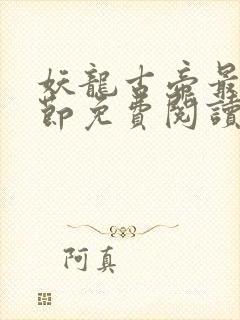 妖龍古帝最
節免費閱讀
阿真